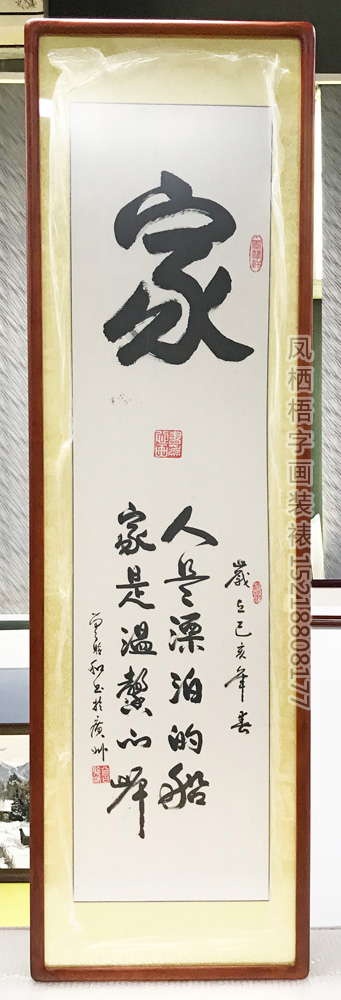 家
歲在己亥年春
人是漂泊的船
家是温馨的岸
书於廣州
凤栖梧字画装裱 15218808177